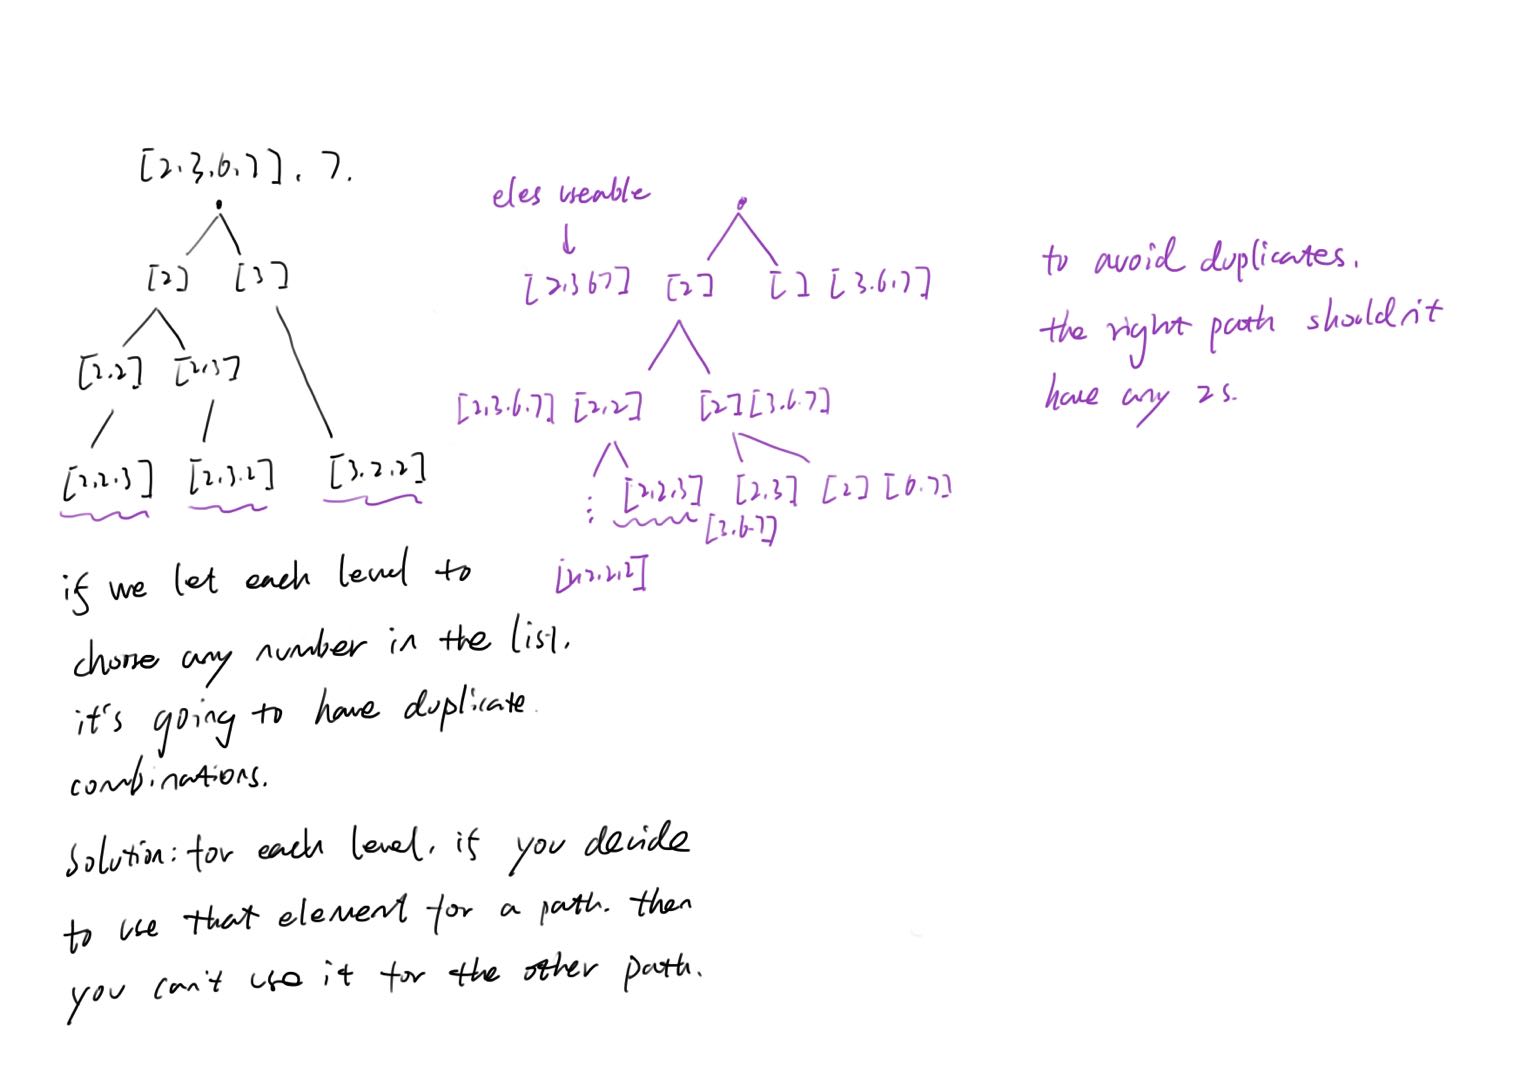 [2,3,6,7], 7.
[2] [3]
[2,2] [2,3]
[2,2,3] [2,3,2] [3,2,2]
if we let each level to
choose any number in the list,
it's going to have duplicate
combinations.
Solution: for each level, if you decide
to use that element for a path. then
you can't use it for the other path.
eles useable
[2,3 6 7] [2] [ ] [3,6,7]
[2,3,6,7] [2,2] [2] [3,6,7]
[2,2,3] [2,3] [2] [6,7]
[3,6,7]
[2,2,2,2]
to avoid duplicates,
the right path shouldn't
have any 2s.